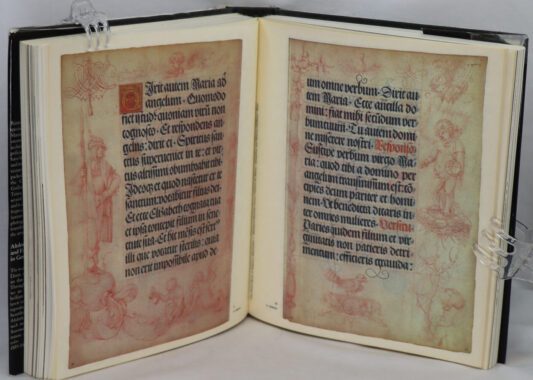 Dixit autem Maria ad
angelum. Quomodo
fiet istud: quoniam virum non
cognosco. Et respondens an=
gelus: dixit ei. Spiritus san=
ctus superveniet in te: et vir=
tus altissimi obumbrabit tibi.
Ideoque et quod nascetur ex te
sanctum, vocabitur filius dei.
Et ecce Elizabeth cognata tua
et ipsa concepit filium in sene=
ctute sua. Et hic mensis est sextus
illi que vocatur sterilis: quia
non erit impossibile apud de=
um omne verbum. Dixit au=
tem Maria. Ecce ancilla do=
mini: fiat mihi secundum ver=
bum tuum. Tu autem domi=
ne miserere nostri. Responso.
Suscipe verbum virgo Ma=
ria: quod tibi a domino per
angelum transmissum est: con=
cipies deum pariter et homi=
nem. Ut benedicta dicaris in=
ter omnes mulieres. Versus.
Paries quidem filium et vir=
ginitatis non patieris detri=
mentum: efficieris gravida: